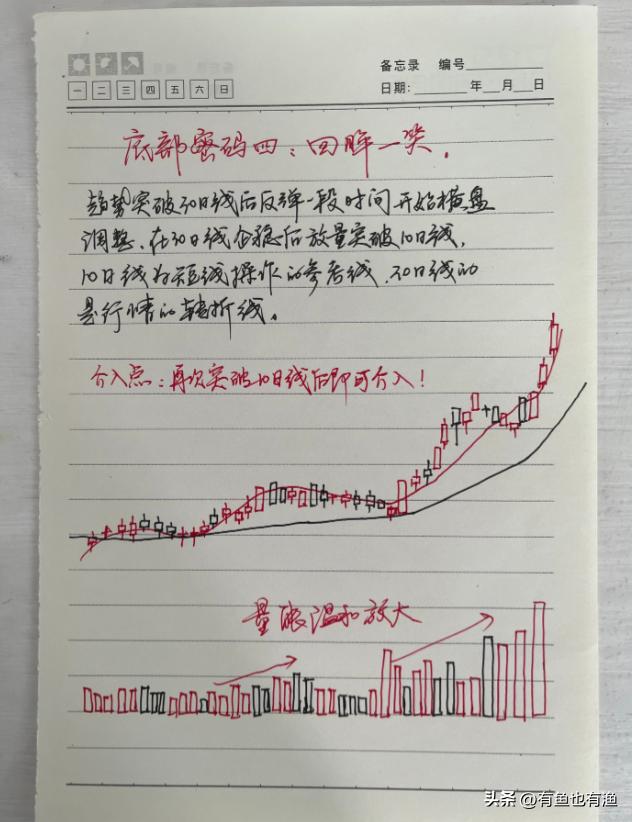 备忘录 编号
一 二 三 四 五 六 日
日期: 年 月 日
底部密码四:回眸一笑.
趋势突破30日线后反弹一段时间开始横盘
调整、在30日线企稳后放量突破10日线,
10日线为短线操作的参考线、30日线的
是行情的转折线。
介入点:再次突破10日线后即可介入!
量能温和放大
头条 @有鱼也有渔